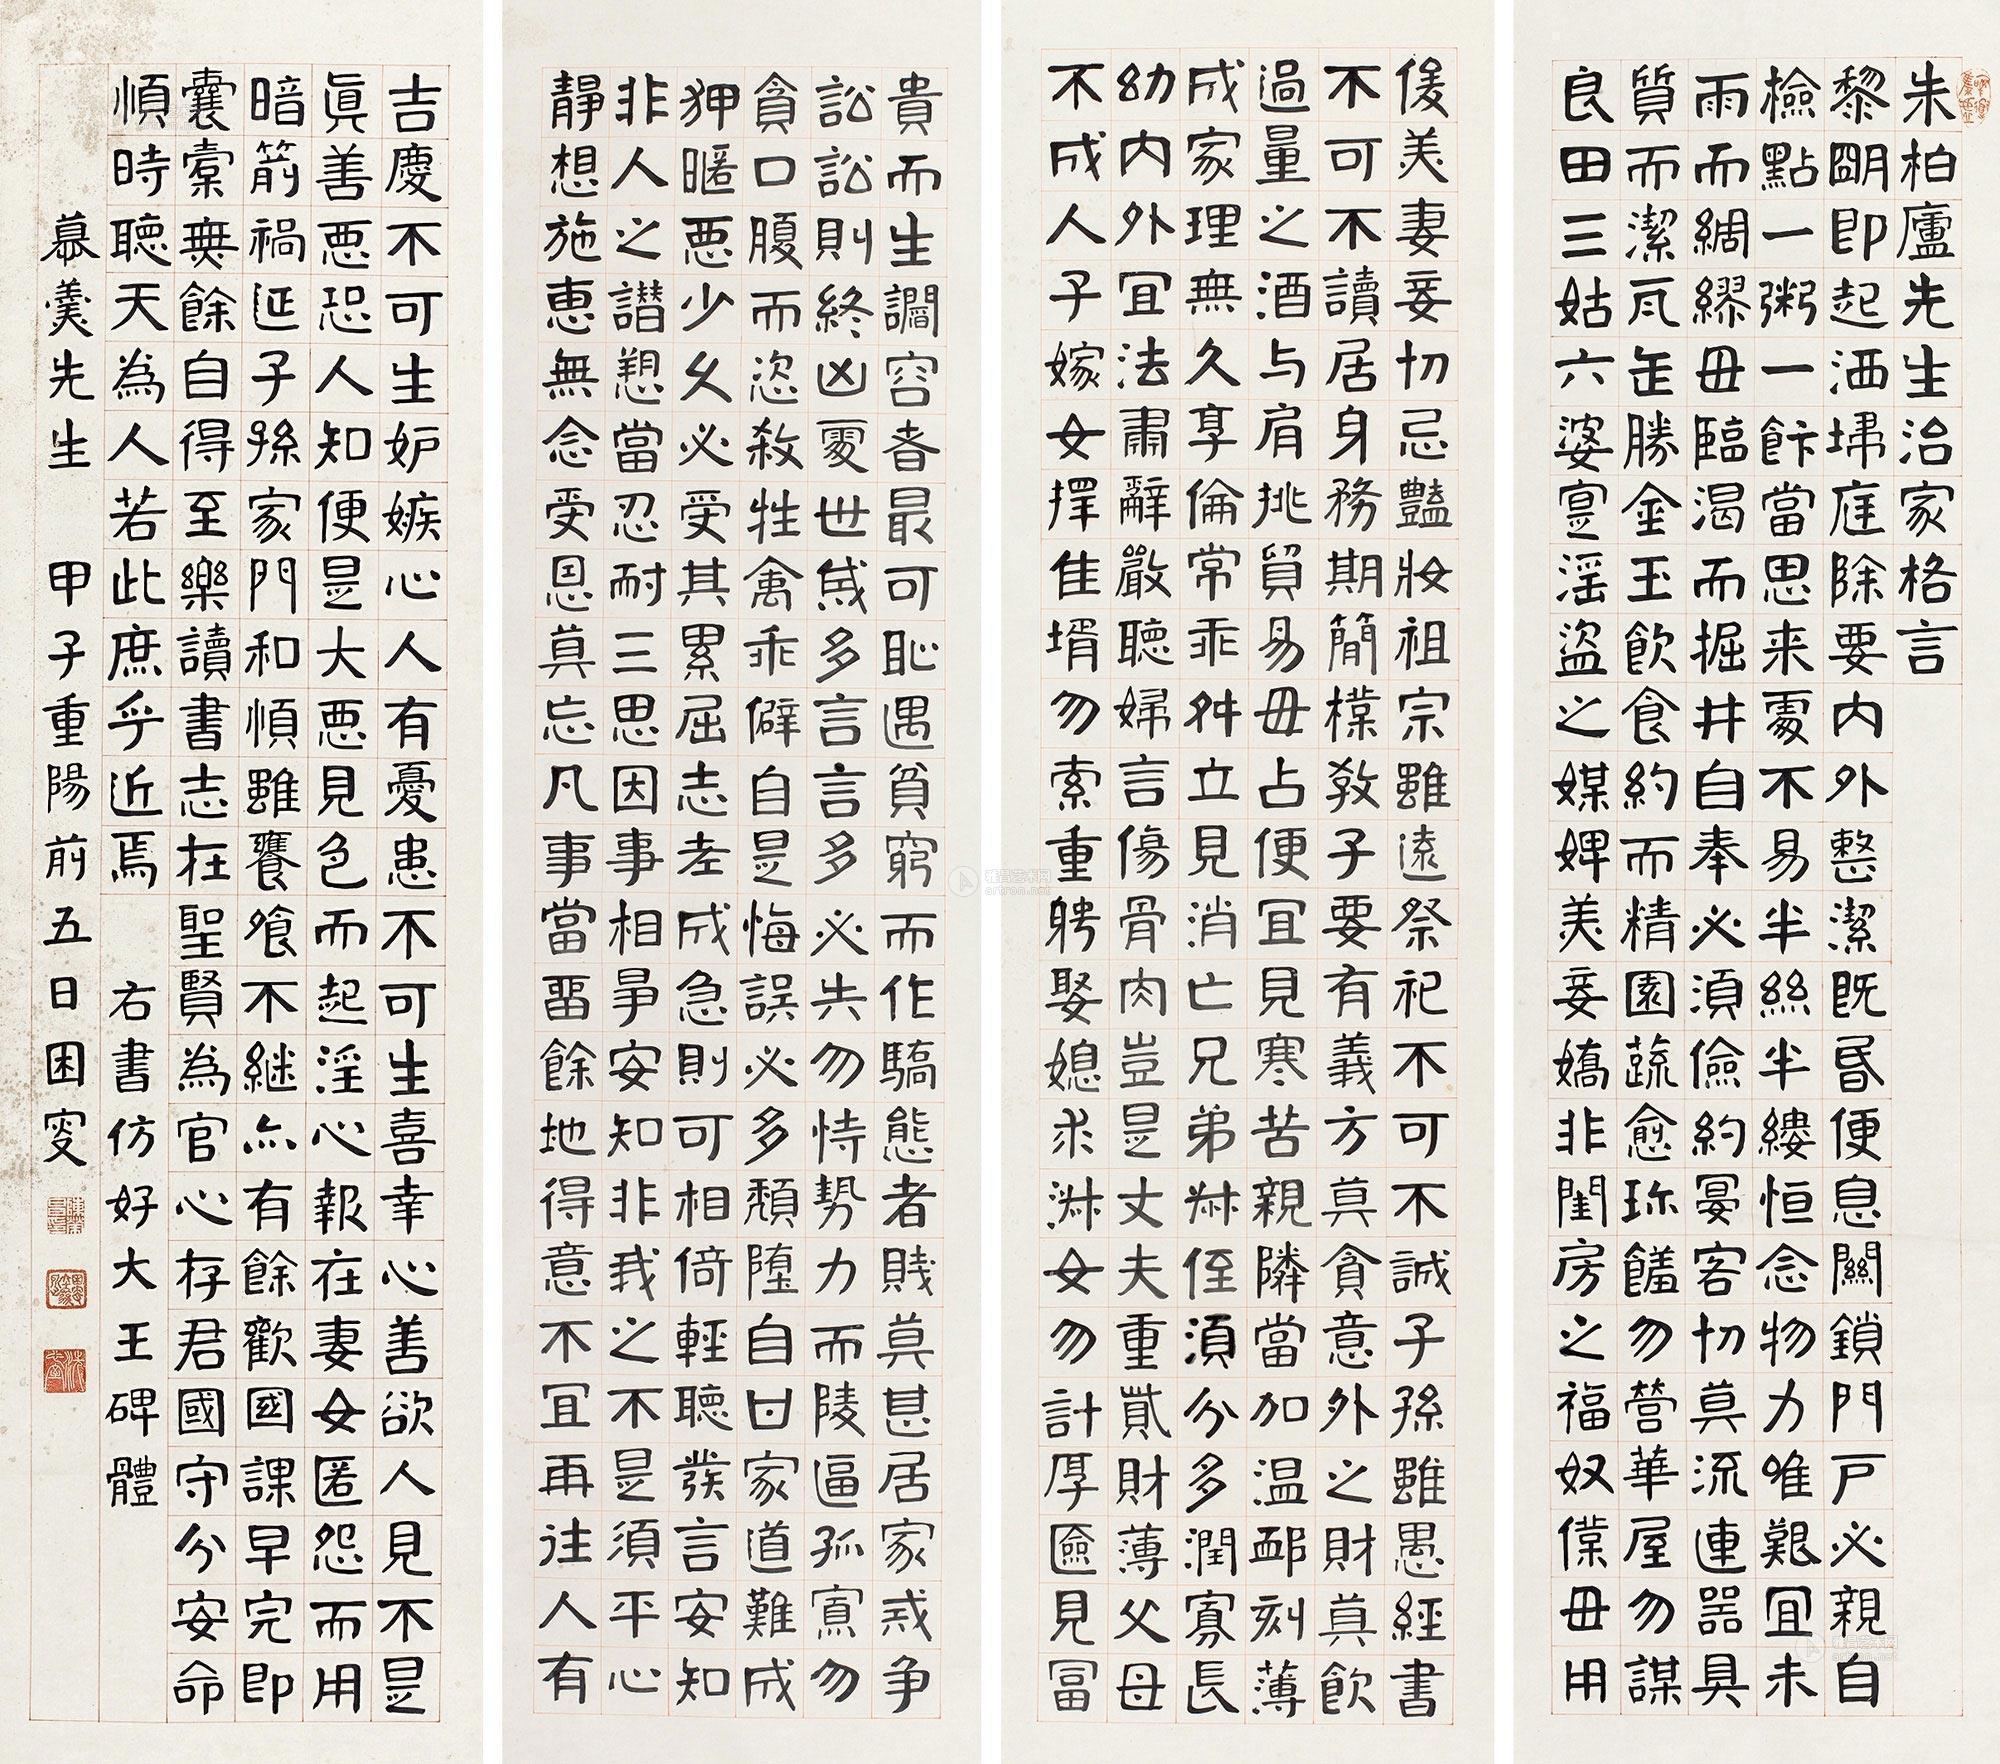 朱柏廬先生治家格言
黎朙即起洒埽庭除要內外整潔旣昏便息關鎖門戶必親自
檢點一粥一飰當思来處不易半絲半縷恒念物力唯艱宜未
雨而綢繆毋臨渴而掘井自奉必須儉約宴客切莫流連器具
質而潔瓦缶勝金玉飲食約而精園蔬愈珎饈勿營華屋勿謀
良田三姑六婆寔淫盜之媒婢美妾嬌非閨房之福奴僕毋用
俊美妻妾切忌豔妝祖宗雖遠祭祀不可不誠子孫雖愚經書
不可不讀居身務期簡樸教子要有義方莫貪意外之財莫飲
過量之酒与肩挑貿易毋占便宜見寒苦親隣當加温卹刻薄
成家理無久享倫常乖舛立見消亡兄弟叔侄須分多潤寡長
幼內外宜法肅辭嚴聽婦言傷骨肉豈是丈夫重貲財薄父母
不成人子嫁女擇佳壻勿索重聘娶媳求淑女勿計厚匳見冨
貴而生讇容者最可恥遇貧窮而作驕態者賤莫甚居家戒爭
訟訟則終凶處世戒多言言多必失勿恃勢力而陵逼孤寡勿
貪口腹而恣殺牲禽乖僻自是悔誤必多頹墮自甘家道難成
狎暱惡少久必受其累屈志老成急則可相倚輕聽發言安知
非人之譖愬當忍耐三思因事相爭安知非我之不是須平心
靜想施惠無念受恩莫忘凡事當畱餘地得意不宜再往人有
吉慶不可生妒嫉心人有憂患不可生喜幸心善欲人見不是
眞善惡恐人知便是大惡見色而起淫心報在妻女匿怨而用
暗箭禍延子孫家門和順雖饔飧不継亦有餘歡國課早完即
囊橐無餘自得至樂讀書志在聖賢為官心存君國守分安命
順時聽天為人若此庶乎近焉　右書仿好大王碑體
慕羹先生　甲子重陽前五日困叟